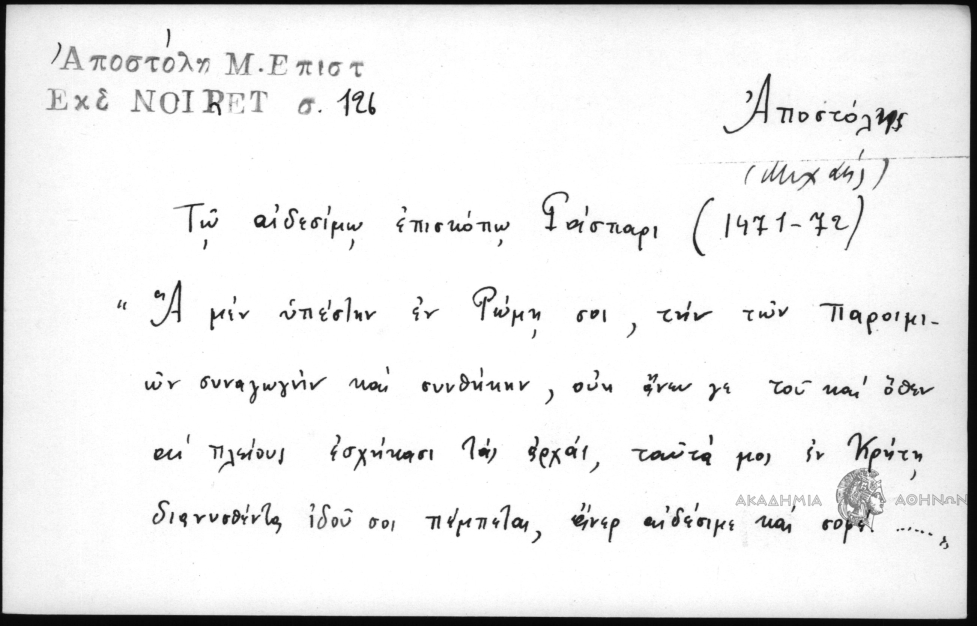 Ἀποστόλη Μ. Επιστ
Εκδ NOIRET σ. 126
Ἀποστόλης
(Μιχαήλ)
Τῷ αἰδεσίμῳ ἐπισκόπῳ Γάσπαρι (1471-72)
" Ἃ μὲν ὑπέστην ἐν Ῥώμῃ σοι, τὴν τῶν Παροιμι-
ῶν συναγωγὴν καὶ συνθήκην, οὐκ ἄνευ γε τοῦ καὶ ὅθεν
αἱ πλείους ἐσχήκασι τὰς ἀρχάς, ταῦτά μοι ἐν Κρήτῃ
διανυσθέντα ἰδού σοι πέμπεται, ἄνερ αἰδέσιμε καὶ σοφέ ......
ΑΚΑΔΗΜΙΑ ΑΘΗΝΩΝ